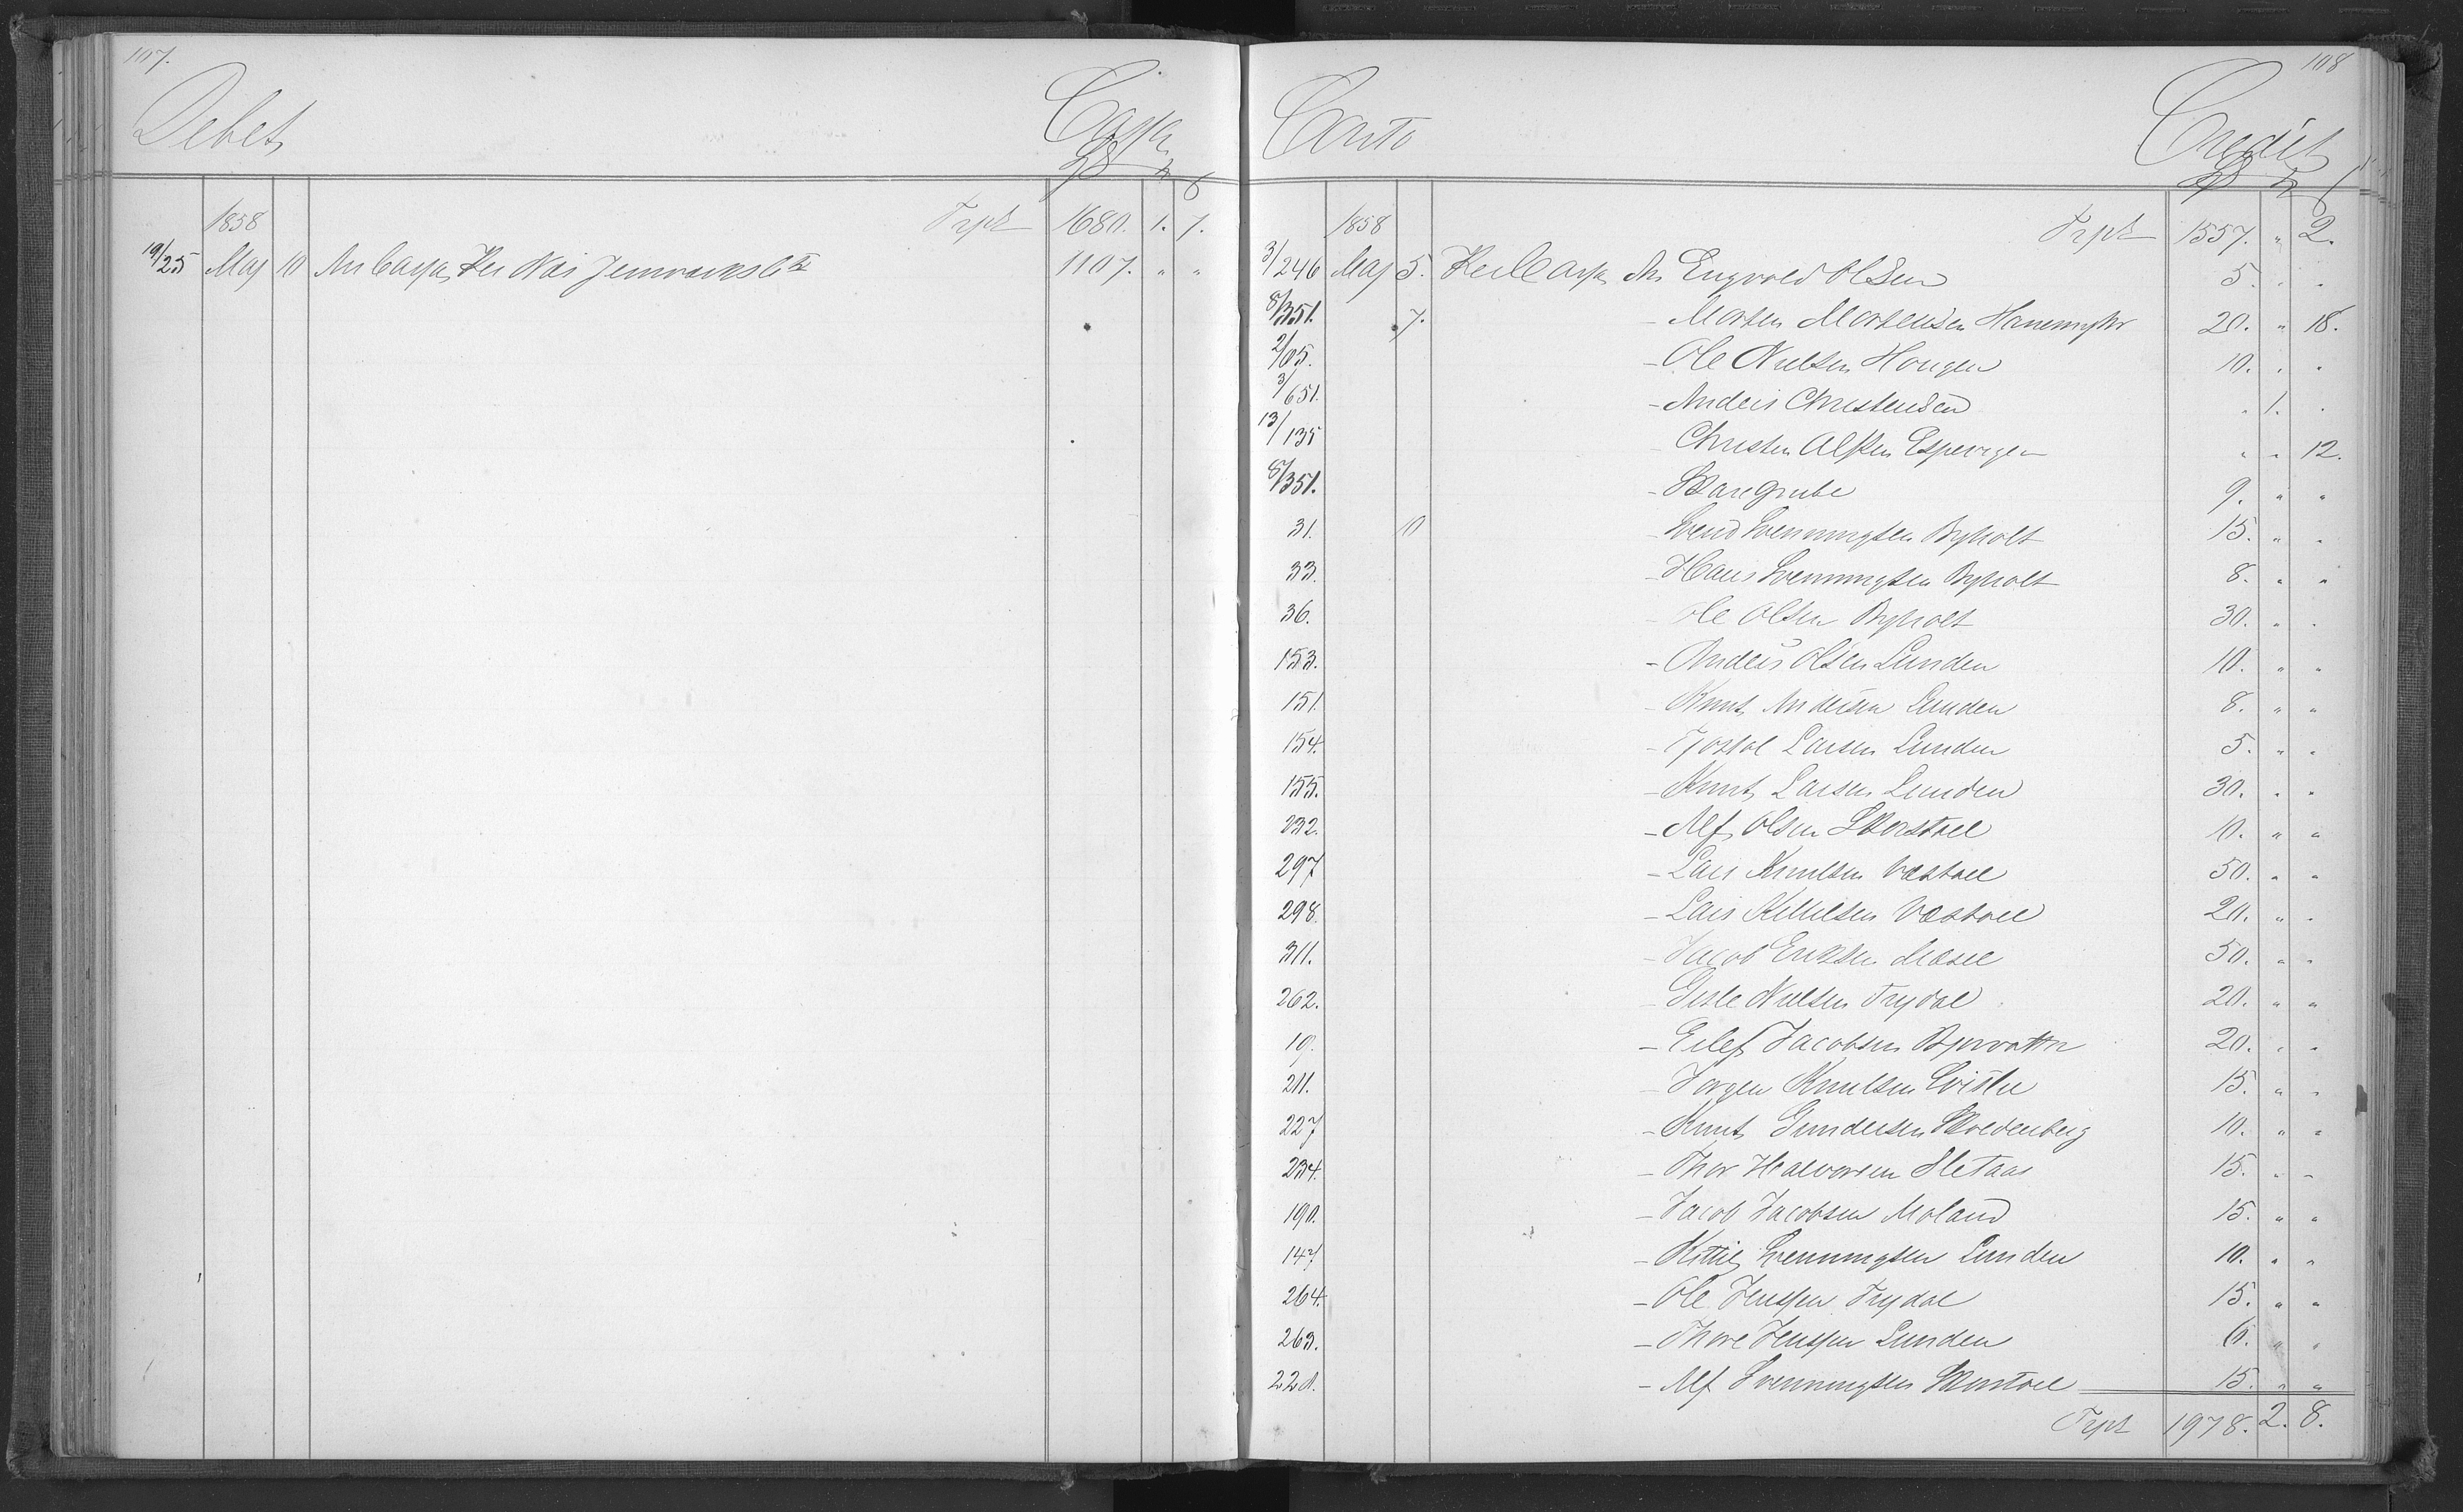 107.
Debet
Cassa
1858
Trpt 1680. 1. 7.
19/25 Maj 10 An Cassa, Per Næs Jernværks 1107. " "
108
Conto
Credit
1858
Trpt 1557. " 2.
3/246 Maj 5. Per Cassa An Engvold Olsen 5. " "
8/351. 7. - Morten Mortensen Hanemyhr 20. " 18.
2/05. - Ole Nielsen Hougen 10. " "
3/651. - Anders Christensen " 1. "
13/135 Christen Alfsen Espevigen " " 12.
8/351. - Skaregrube 9. " "
31. 10 - Svend Svenningsen Byholt 15. " "
33. - Hans Svenningsen Byholt 8. " "
36. - Ole Olsen Byholt 30. " "
153. - Anders Olsen Lunden 10. " "
151. - Knut Andersen Lunden 8. " "
154. - Tjostol Larsen Lunden 5. " "
155. - Knut Larsen Lunden 30. " "
232. - Alf Olsen Skorstoel 10. " "
297 - Lars Knutsen Vastoel 50. " "
298. - Lars Kittilsen Vastoel 20. " "
311. - Jacob Eriksen Aasel 50. " "
262. - Gisle Nielsen Trydal 20. " "
19. - Eilef Jacobsen Bjorvattn 20. " "
211. - Jørgen Knutsen 15. " "
227 - Knut Gundersen Skoldenberg 10. " "
234. - Thor Halvorsen Sletaas 15. " "
190. - Jacob Jacobsen Moland 15. " "
147 - Kittil Svenningsen Lunden 10. " "
264. - Ole Jenssen Trydal 15. " "
263. - Thore Jenssen Lunden 6. " "
228. - Alf Svenningsen Skorstoel 15. " "
Trpt 1978. 2. 8.